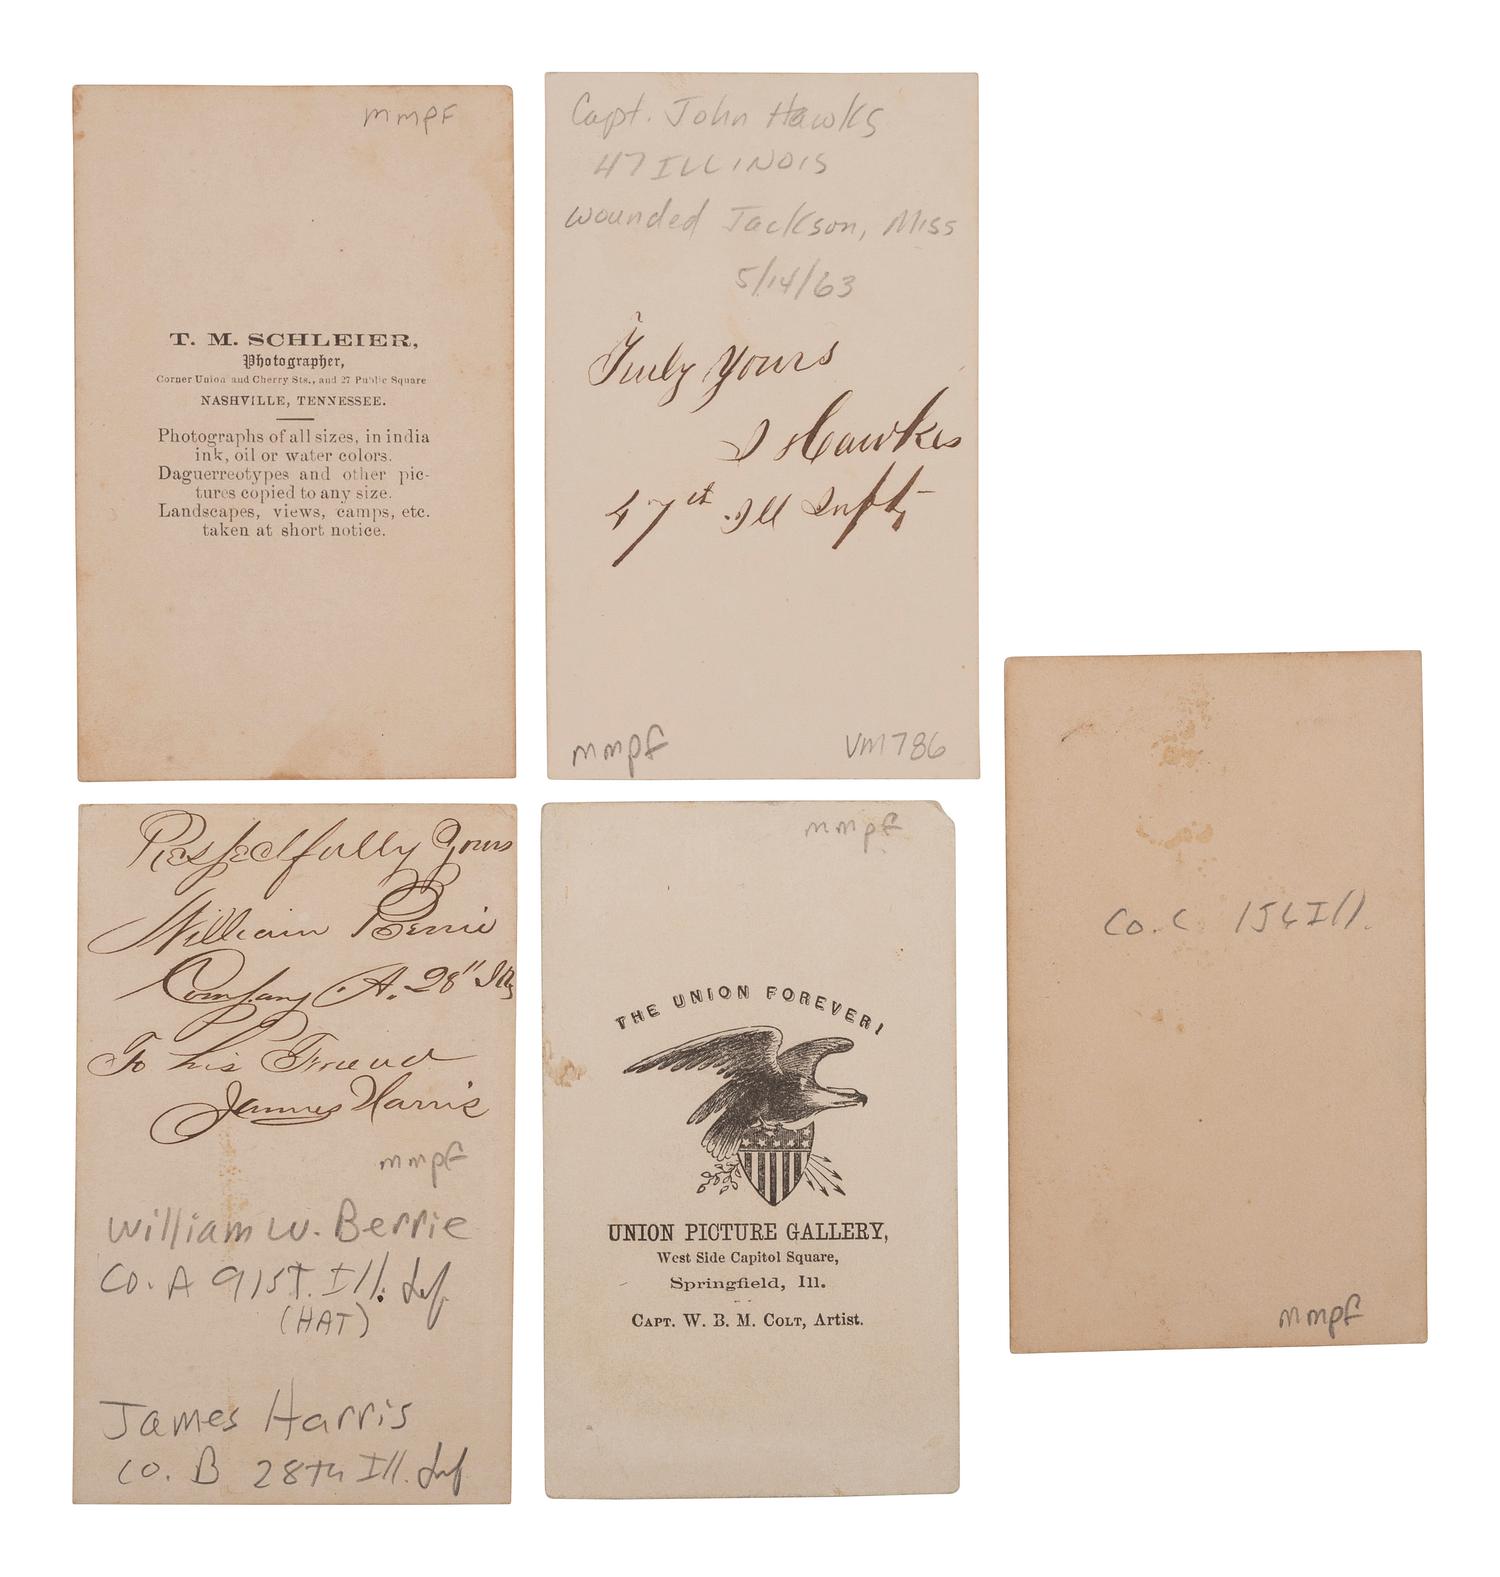 mmpf
T. M. SCHLEIER,
Photographer,
Corner Union and Cherry Sts., and 27 Public Square
NASHVILLE, TENNESSEE.
Photographs of all sizes, in india
ink, oil or water colors.
Daguerreotypes and other pic-
tures copied to any size.
Landscapes, views, camps, etc.
taken at short notice.
Capt. John Hawks
47 ILLINOIS
wounded Jackson, Miss
5/14/63
Truly Yours
J Hawkes
47th Ill Infty
mmpf
VM786
Respectfully Yours
William Berrie
Company A. 28th Ills
To his Friend
James Harris
mmpf
William W. Berrie
Co. A 91ST. Ill. Inf.
(HAT)
James Harris
Co. B 28th Ill. Inf
mmpf
THE UNION FOREVER!
UNION PICTURE GALLERY,
West Side Capitol Square,
Springfield, Ill.
CAPT. W. B. M. COLT, Artist.
Co. C 156 Ill.
mmpf